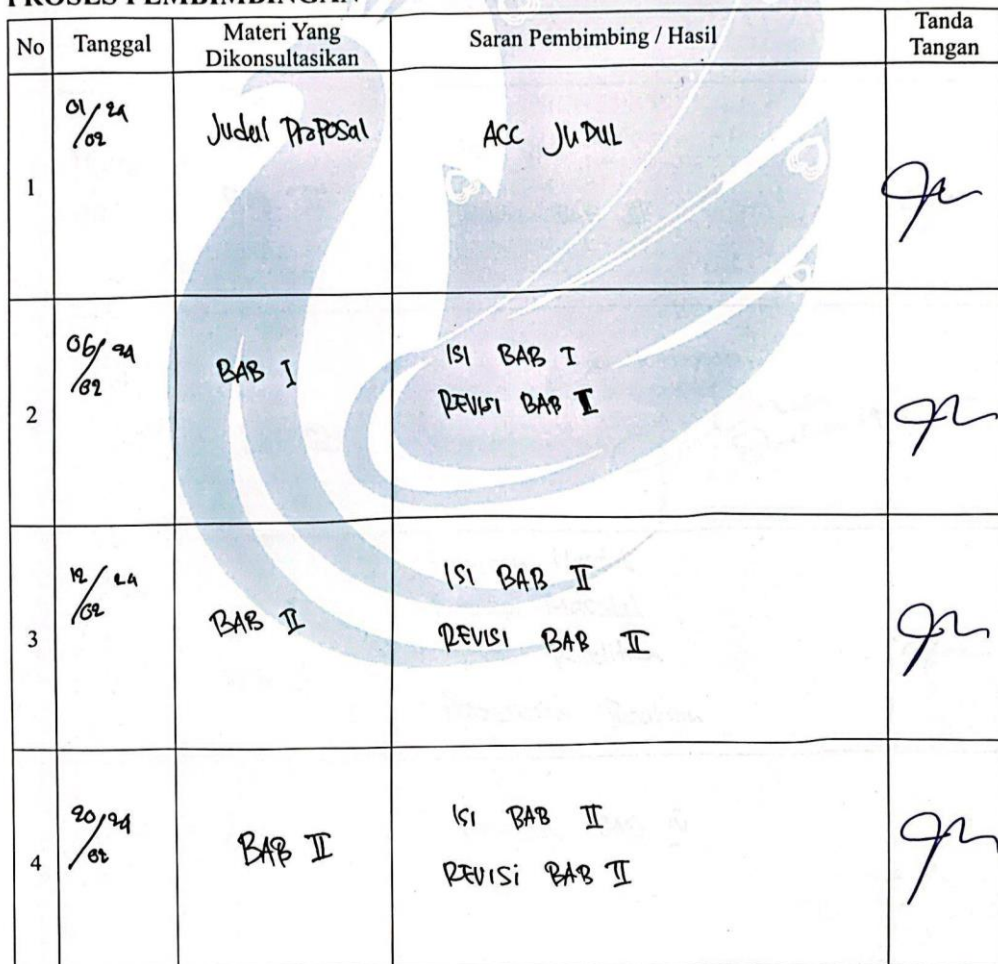 PROSES PEMBIMBINGAN
No Tanggal Materi Yang Dikonsultasikan Saran Pembimbing / Hasil Tanda Tangan
1 01/02 24 Judul Proposal ACC JUDUL
2 06/02 24 BAB I ISI BAB I
REVISI BAB I
3 12/02 24 BAB II ISI BAB II
REVISI BAB II
4 20/02 24 BAB II ISI BAB II
REVISI BAB II